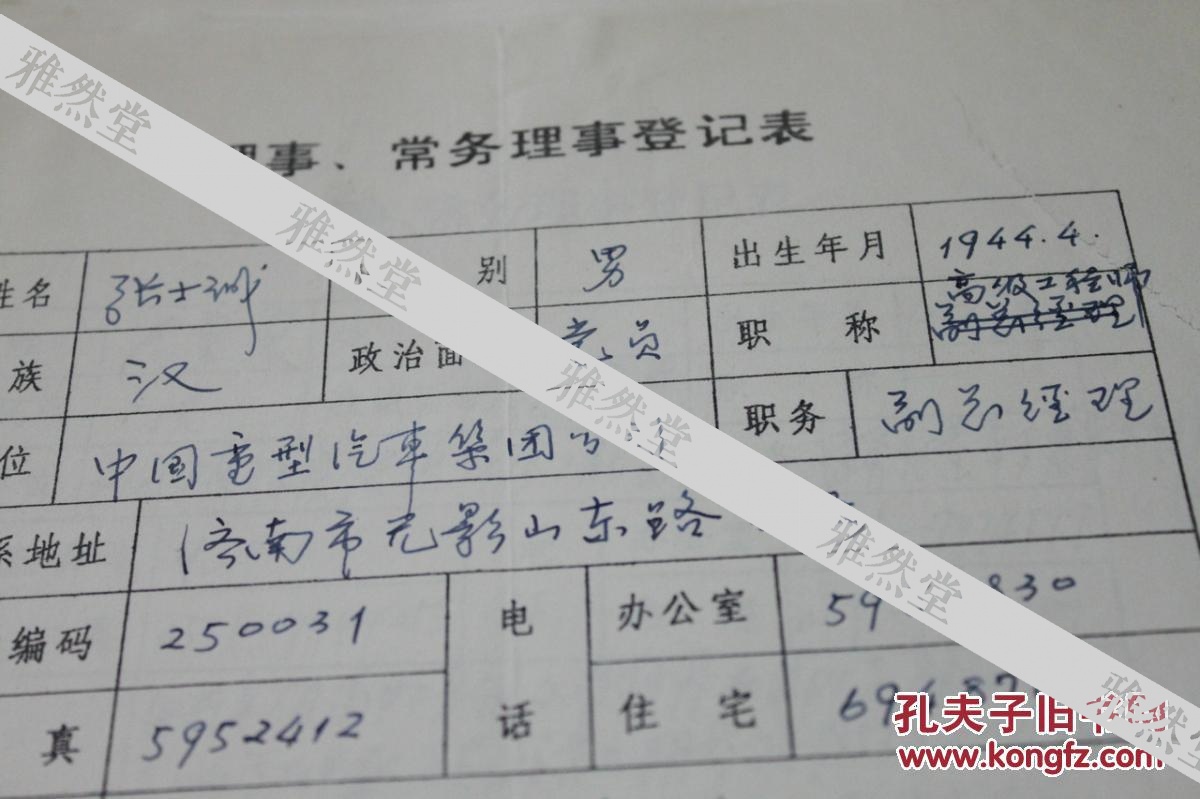 事、常务理事登记表
姓名 张士诚 别 男 出生年月 1944.4.
族 汉 政治面 党员 职 称 高级工程师 副总经理
位 中国重型汽车集团公 职务 副总经理
系地址 济南市无影山东路
编码 250031 电 办公室 59 830
真 5952412 话 住 宅 69
雅然堂
雅然堂
雅然堂
雅然堂
雅然堂
孔夫子旧书网
www.kongfz.com